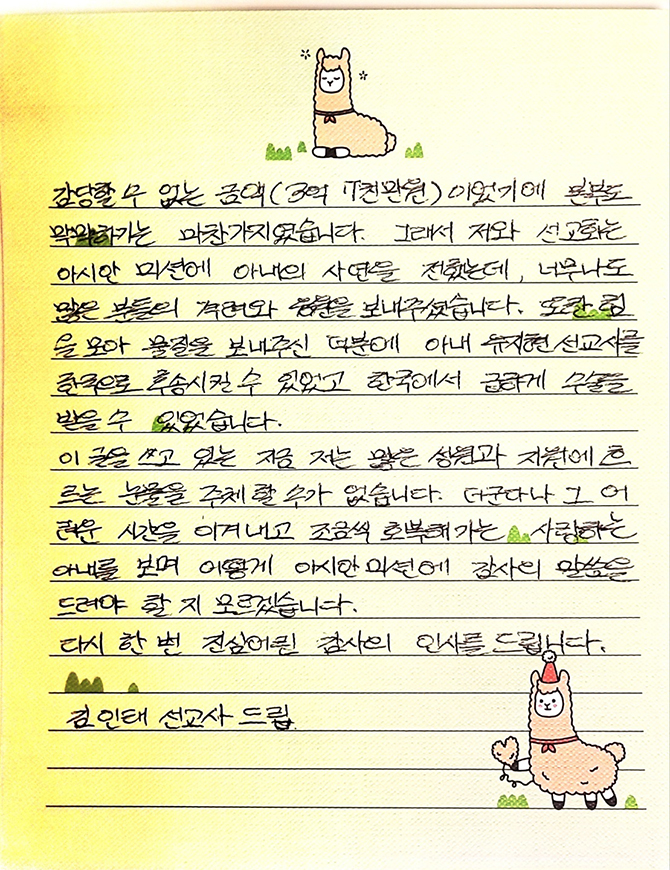 감당할 수 없는 금액(3억 7천만원)이었기에 본부도
막막하기는 마찬가지였습니다. 그래서 저와 선교회는
아시안 미션에 아내의 사연을 전했는데, 너무나도
많은 분들의 격려와 응원을 보내주셨습니다. 또한 힘
을 모아 물질을 보내주신 덕분에 아내 유지현 선교사를
한국으로 후송시킬 수 있었고 한국에서 급하게 수술을
받을 수 있었습니다.
이 글을 쓰고 있는 지금 저는 많은 성원과 지원에 흐
르는 눈물을 주체 할 수가 없습니다. 더군다나 그 어
려운 시간을 이겨내고 조금씩 회복해 가는 사랑하는
아내를 보며 어떻게 아시안미션에 감사의 말씀을
드려야 할 지 모르겠습니다.
다시 한 번 진심어린 감사의 인사를 드립니다.
김인태 선교사 드림